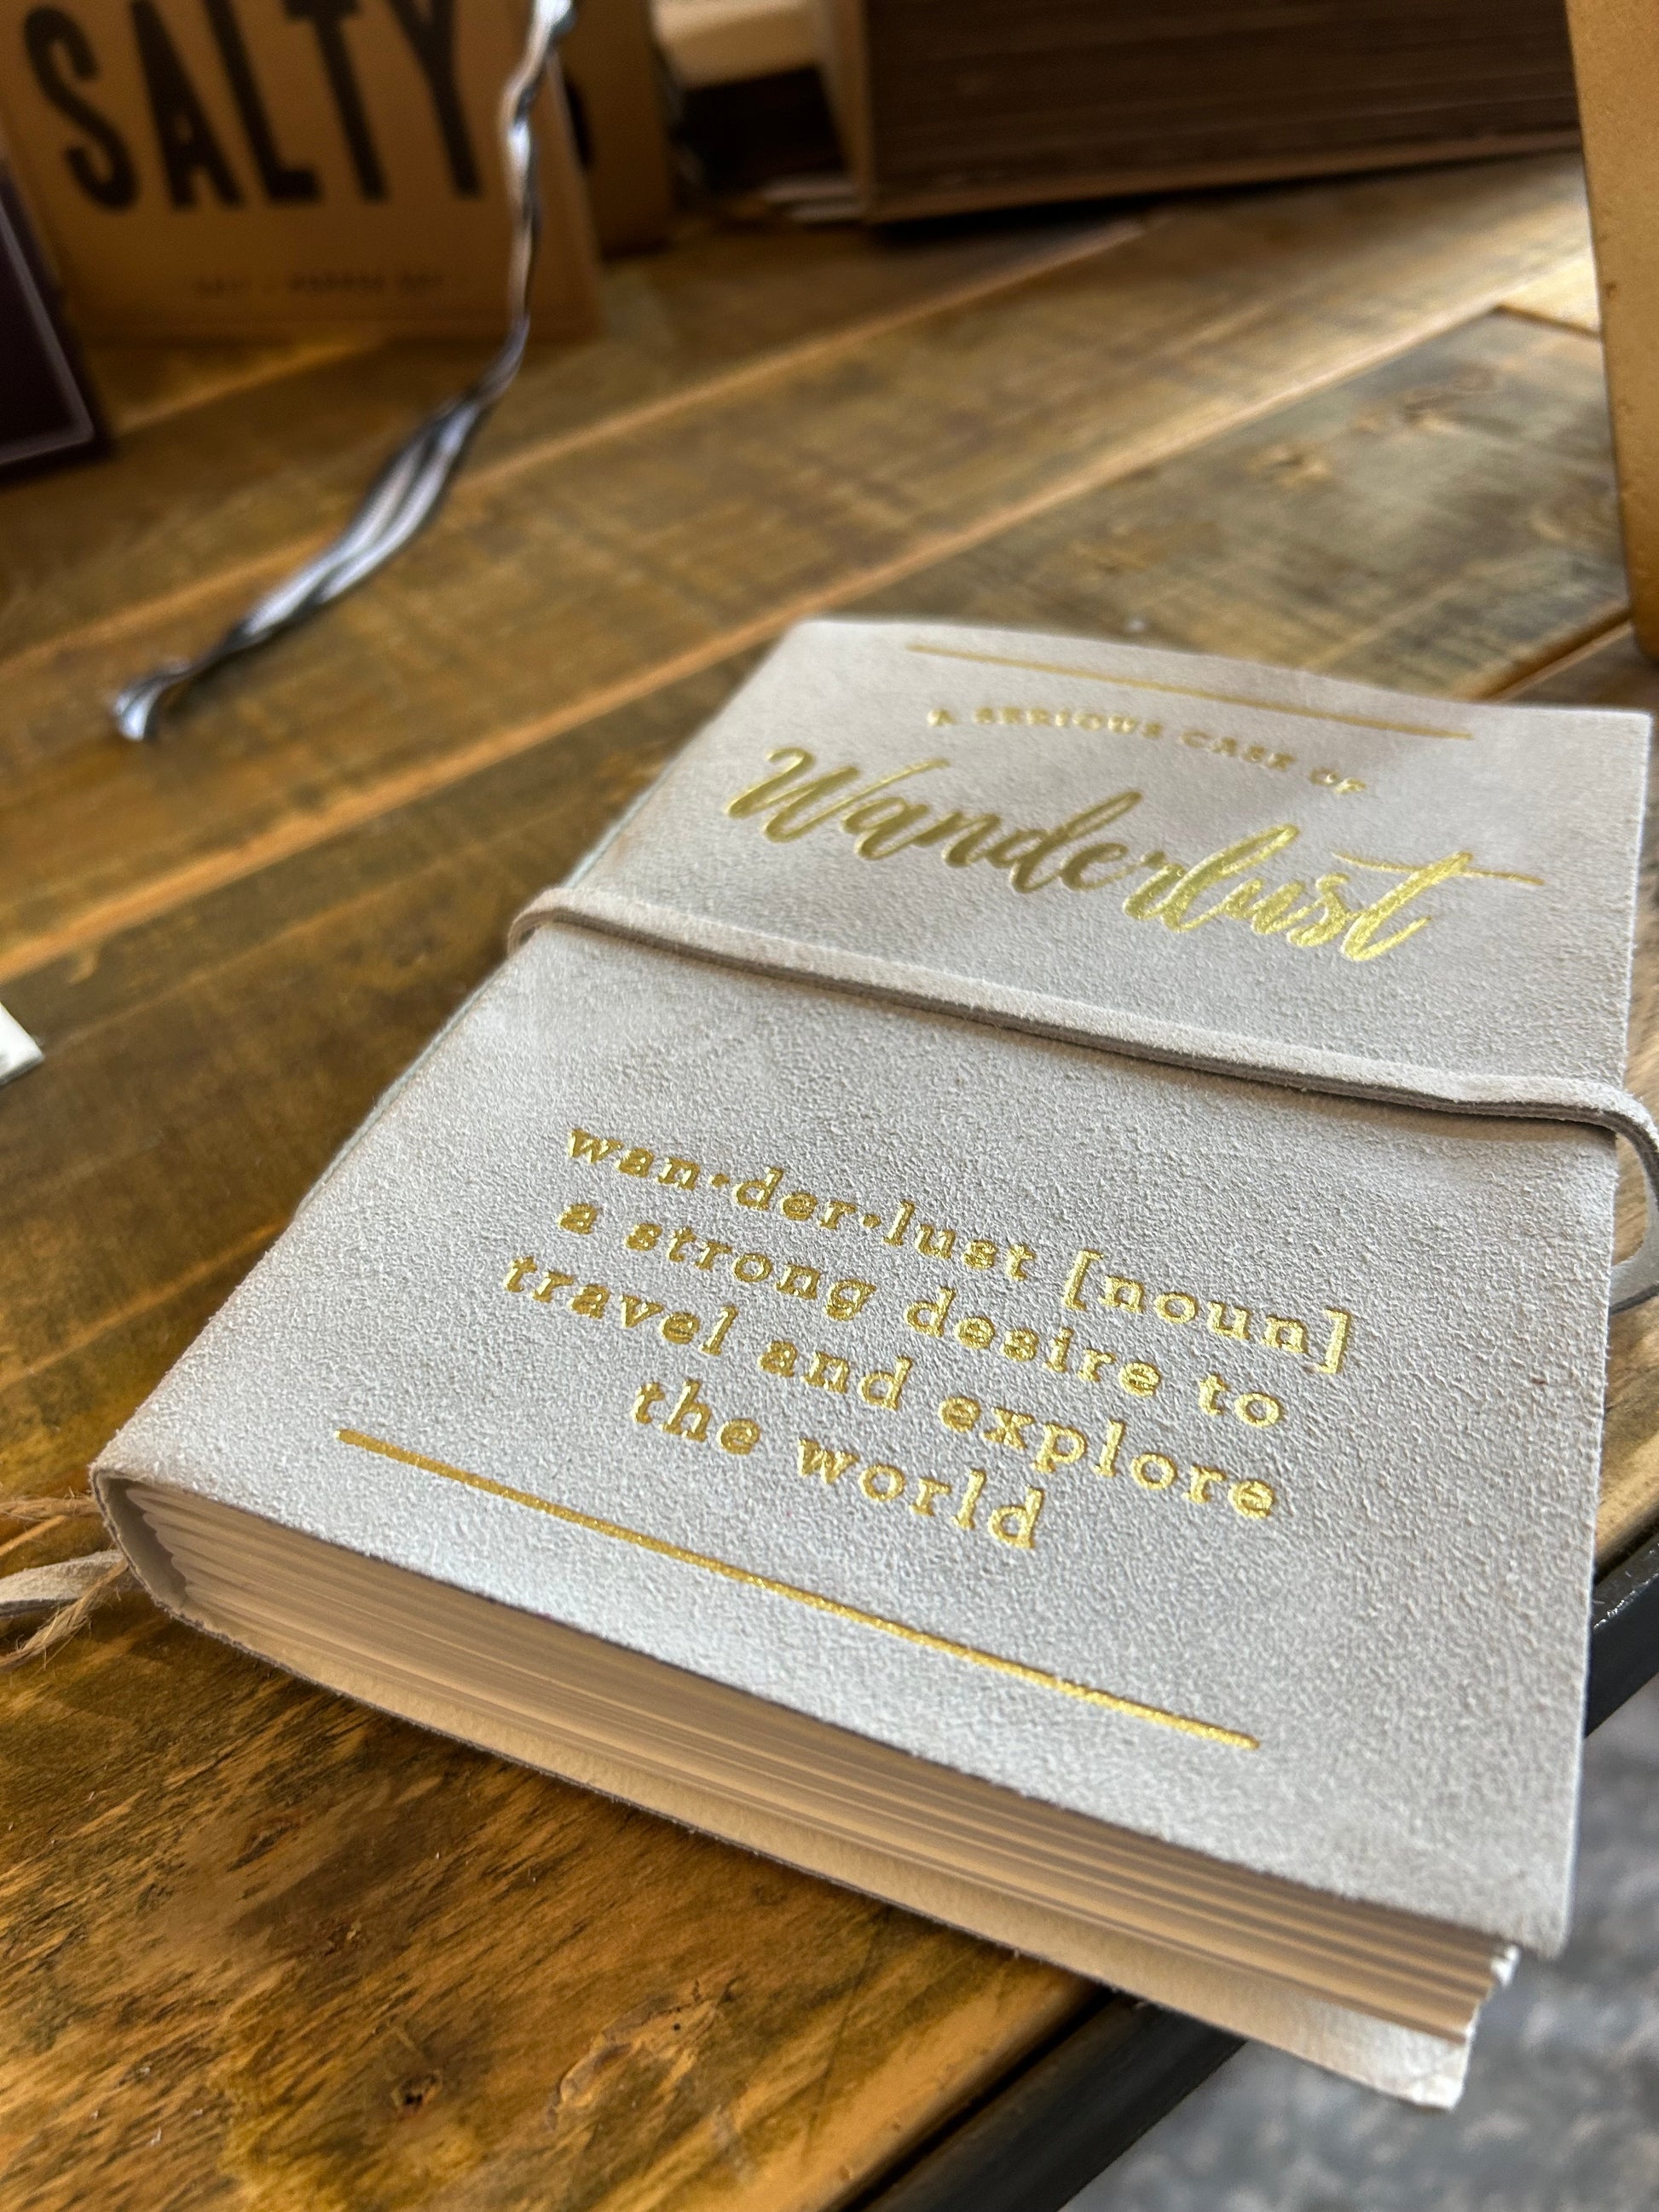 SALTY
A SERIOUS CASE OF
Wanderlust
wan·der·lust [noun]
a strong desire to
travel and explore
the world